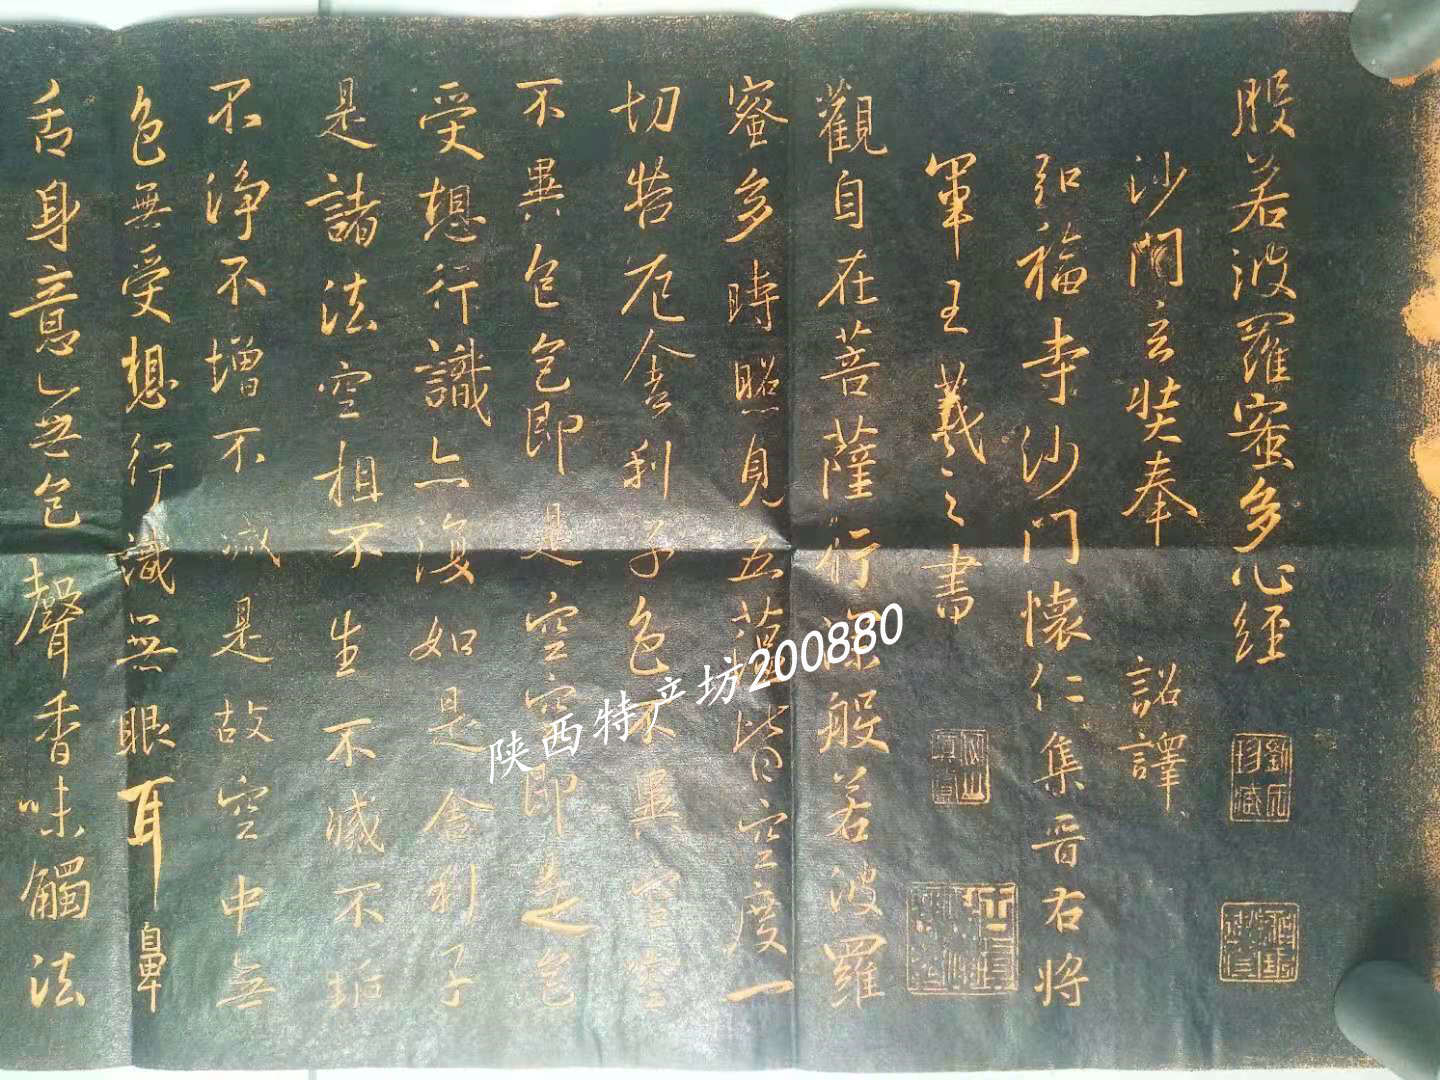 般若波羅蜜多心經
沙門玄奘奉詔譯
弘福寺沙門懷仁集晉右將
軍王羲之書
觀自在菩薩行深般若波羅
蜜多時照見五蘊皆空度一
切苦厄舍利子色不異空空
不異色色即是空空即是色
受想行識亦復如是舍利子
是諸法空相不生不滅不垢
不淨不增不減是故空中無
色無受想行識無眼耳鼻
舌身意無色聲香味觸法
陕西特产坊200880